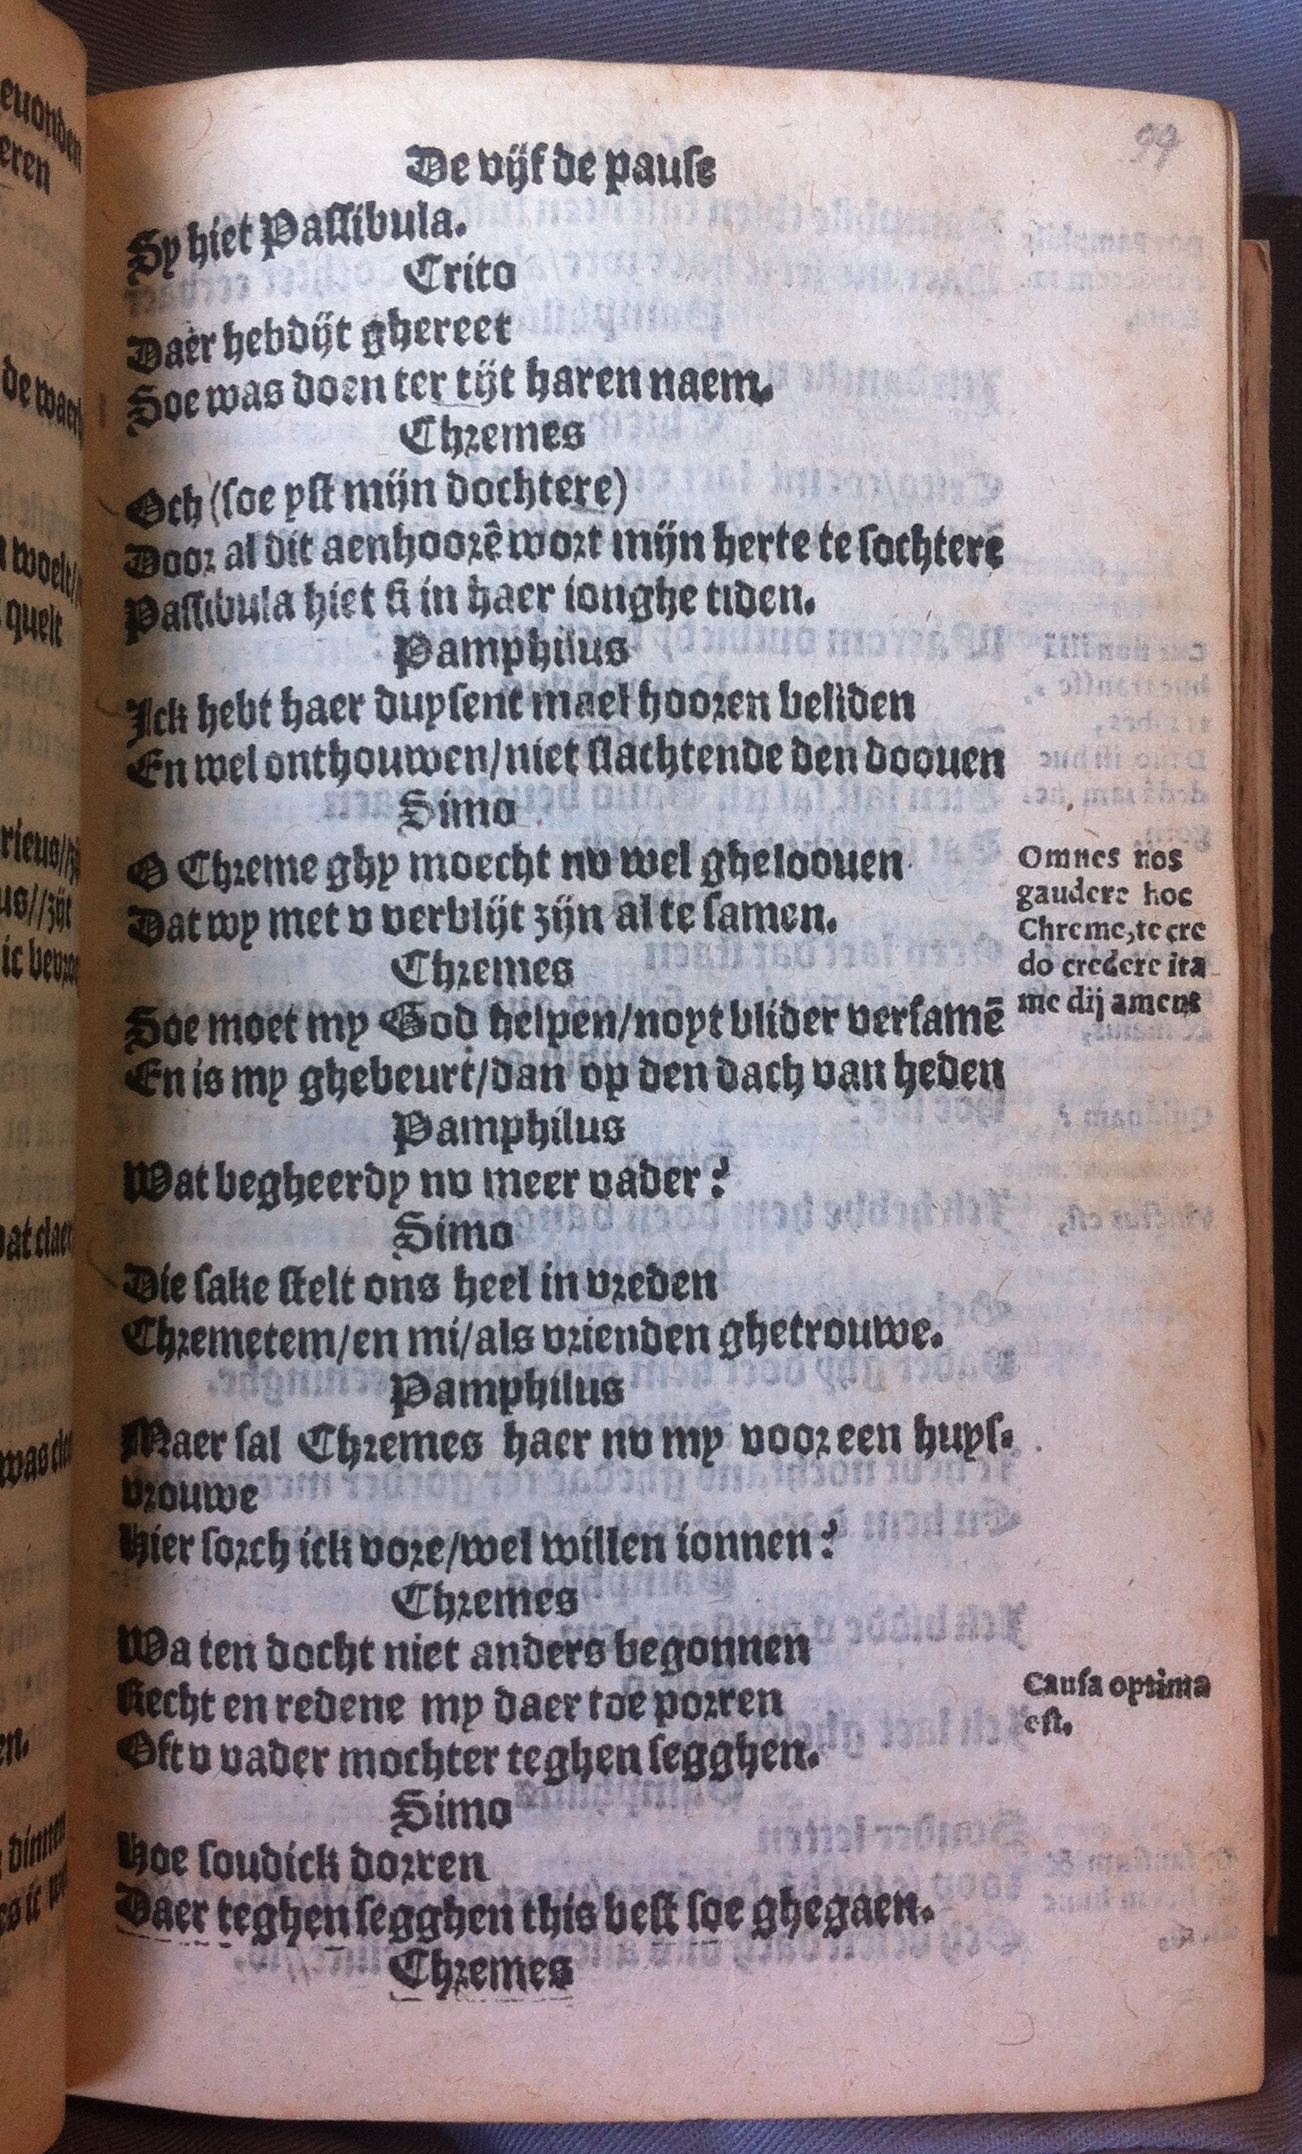 99
De vijf de pause
Sy hiet Passibula.
Crito
Daer hebdijt ghereet
Soe was doen ter tijt haren naem.
Chremes
Och (soe yst mijn dochtere)
Door al dit aenhoorē wort mijn herte te sochtere
Passibula hiet si in haer ionghe tiden.
Pamphilus
Ick hebt haer duysent mael hooren beliden
En wel onthouwen/niet slachtende den doouen
Simo
O Chreme ghy moecht nv wel gheloouen
Dat wy met v verblijt zijn al te samen.
Omnes nos
gaudere hoc
Chreme, te cre
do credere ita
me dij ament
Chremes
Soe moet my God helpen/noyt blider versamē
En is my ghebeurt/dan op den dach van heden
Pamphilus
Wat begheerdy nv meer vader?
Simo
Die sake stelt ons heel in vreden
Chremetem/en mi/als vrienden ghetrouwe.
Pamphilus
Maer sal Chremes haer nv my voor een huys-
vrouwe
Hier sorch ick vore/wel willen ionnen?
Chremes
Wa ten docht niet anders begonnen
Recht en redene my daer toe porren
Oft v vader mochter teghen segghen.
Causa optima
est.
Simo
Hoe soudick dorren
Daer teghen segghen this best soe ghegaen.
Chremes